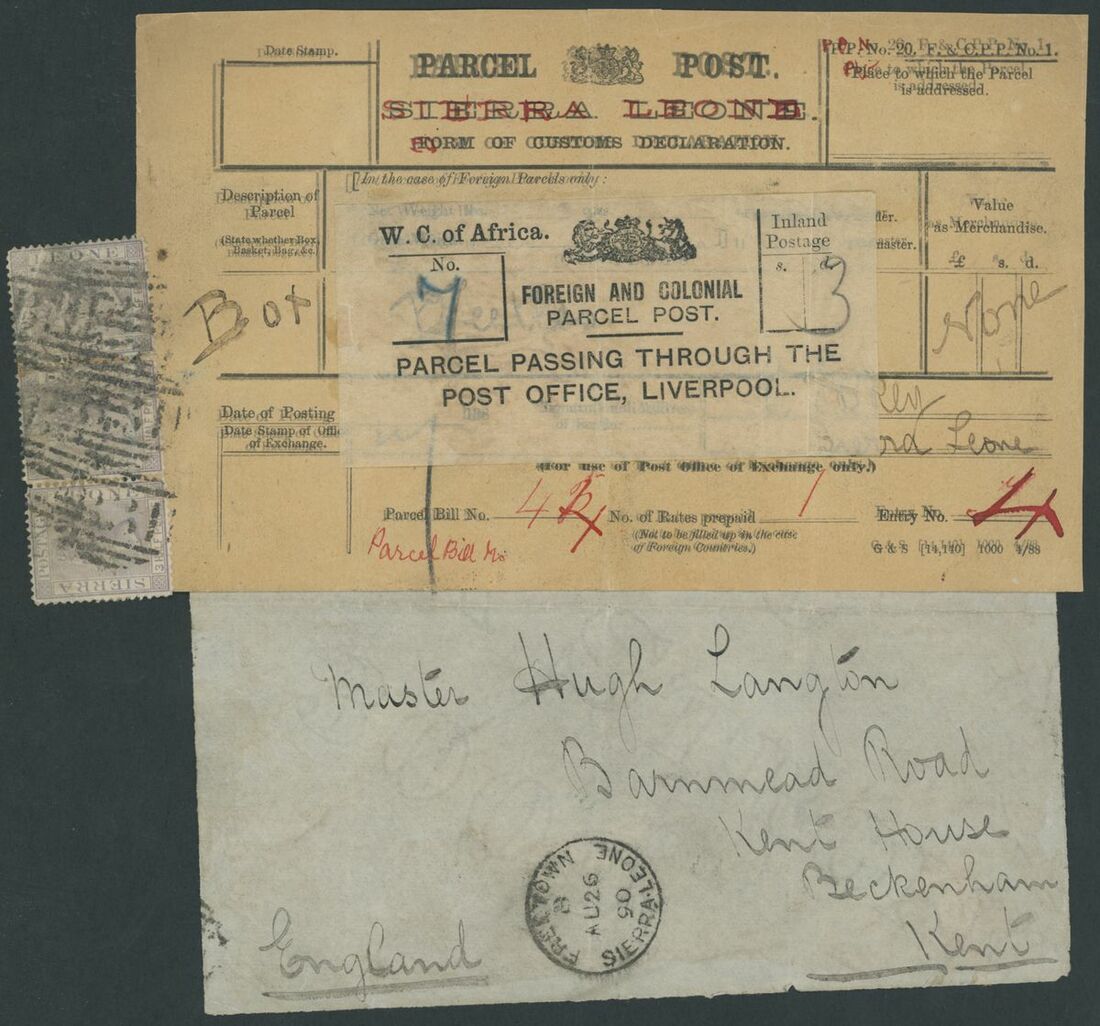 Date Stamp.
PARCEL POST.
SIERRA LEONE.
FORM OF CUSTOMS DECLARATION.
P.P. No. 20, F. & C.P.P. No. 1.
Place to which the Parcel
is addressed.
In the case of Foreign Parcels only:
Description of
Parcel
(State whether Box,
Basket, Bag, &c.
Value
as Merchandise.
£ s. d.
W. C. of Africa.
No.
7
FOREIGN AND COLONIAL
PARCEL POST.
Inland
Postage
s. d.
3
PARCEL PASSING THROUGH THE
POST OFFICE, LIVERPOOL.
Box
None
Date of Posting
Date Stamp of Offi
of Exchange.
Leone
(For use of Post Office of Exchange only.)
Parcel Bill No. 4
No. of Rates prepaid 1
(Not to be filled up in the case
of Foreign Countries.)
Entry No. 4
Parcel Bill No
G & S [14,140] 1000 4/88
LEONE
POSTAGE
SIERRA
Master Hugh Langton
Barnmead Road
Kent House
Beckenham
Kent
England
FREETOWN
B
AU 26
90
SIERRA-LEONE